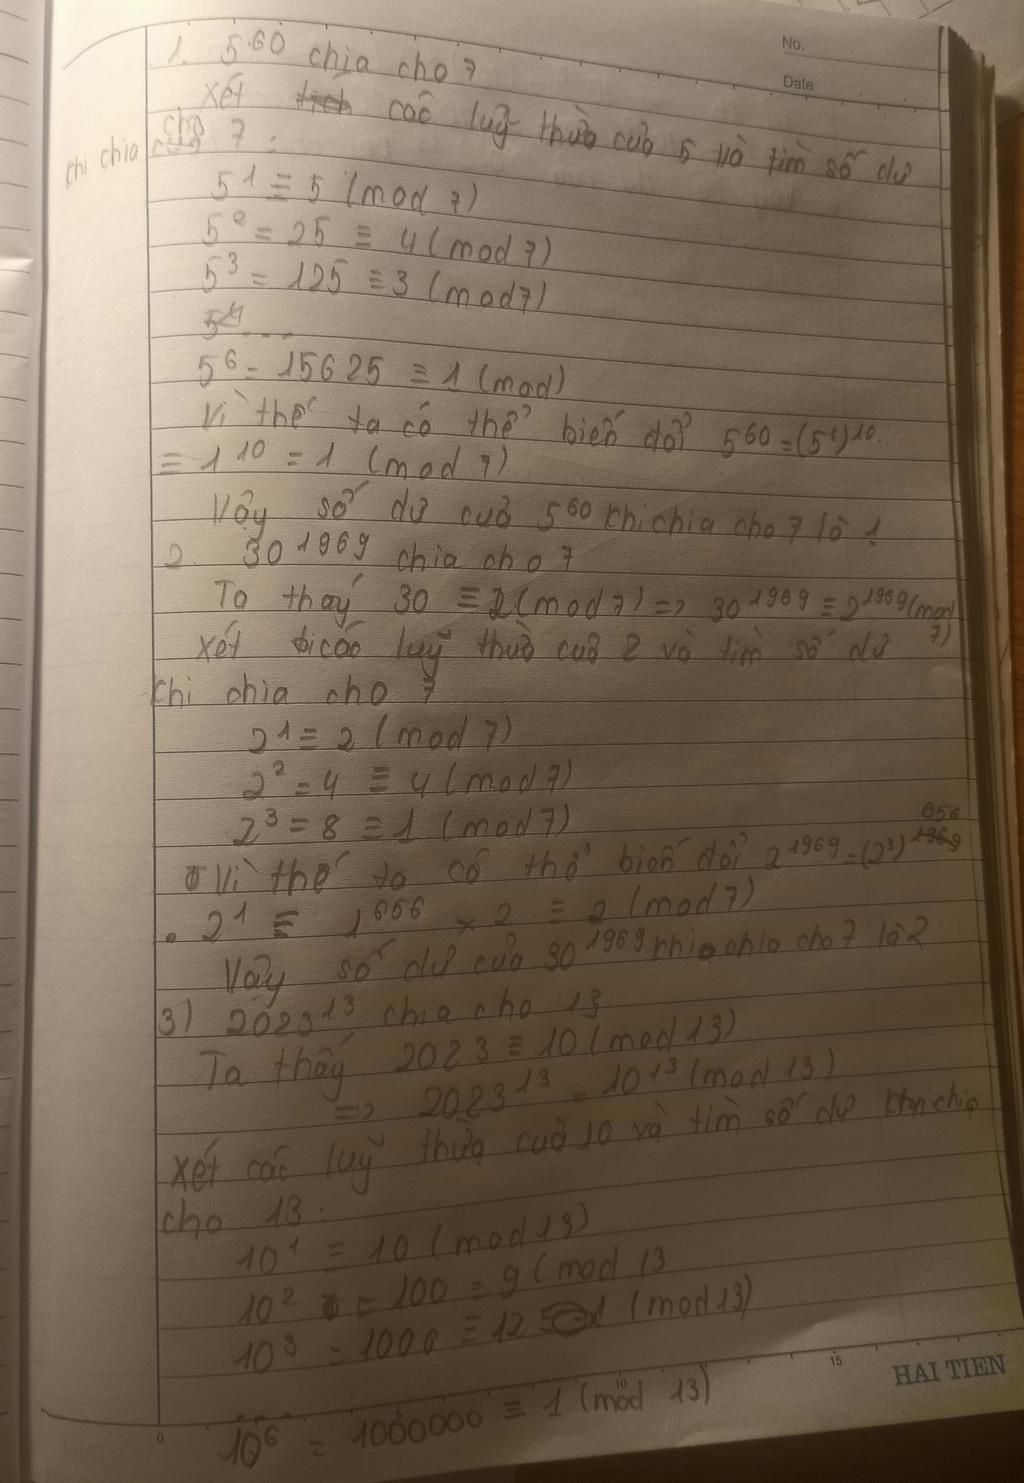 No.
Date
1. 5^60 chia cho 7
Xét các luỹ thừa của 5 và tìm số dư
khi chia cho 7 :
5^1 ≡ 5 (mod 7)
5^2 = 25 ≡ 4 (mod 7)
5^3 = 125 ≡ 3 (mod 7)
5^4 ...
5^6 = 15625 ≡ 1 (mod)
Vì thế ta có thể biến đổi 5^60 = (5^6)^10
≡ 1^10 = 1 (mod 7)
Vậy số dư của 5^60 khi chia cho 7 là 1
2. 30^1969 chia cho 7
Ta thấy 30 ≡ 2 (mod 7) => 30^1969 ≡ 2^1969 (mod 7)
Xét các luỹ thừa của 2 và tìm số dư
khi chia cho 7
2^1 ≡ 2 (mod 7)
2^2 = 4 ≡ 4 (mod 7)
2^3 = 8 ≡ 1 (mod 7)
Vì thế ta có thể biến đổi 2^1969 = (2^3)^656
. 2^1 ≡ 1^656 × 2 ≡ 2 (mod 7)
Vậy số dư của 30^1969 khi chia cho 7 là 2
3) 2023^13 chia cho 13
Ta thấy 2023 ≡ 10 (mod 13)
=> 2023^13 = 10^13 (mod 13)
Xét các luỹ thừa của 10 và tìm số dư khi chia
cho 13.
10^1 ≡ 10 (mod 13)
10^2 = 100 = 9 (mod 13
10^3 = 1000 ≡ 12 (mod 13)
10^6 = 1000000 ≡ 1 (mod 13)
0 5 10 15
HAI TIEN